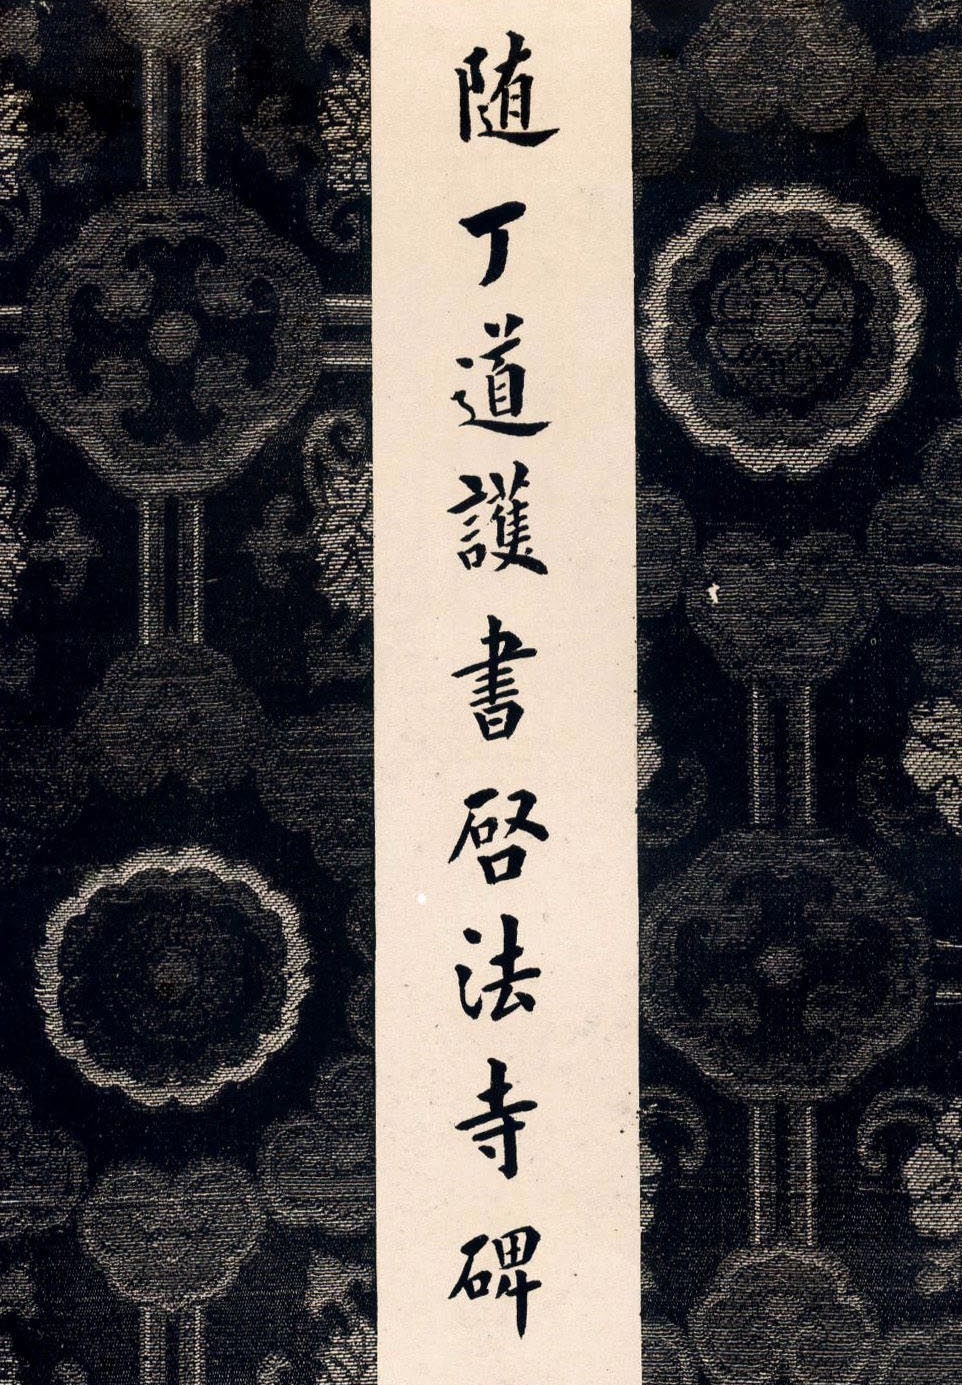 随丁道護書啓法寺碑